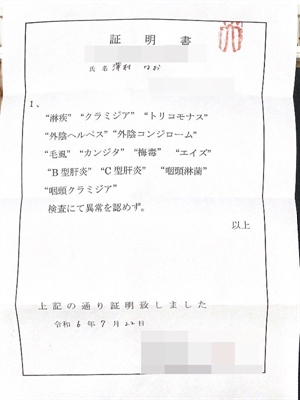 証明書
氏名 澤村 なお
1、
“淋疾” “クラミジア” “トリコモナス”
“外陰ヘルペス” “外陰コンジローム”
“毛虱” “カンジタ” “梅毒” “エイズ”
“B型肝炎” “C型肝炎” “咽頭淋菌”
“咽頭クラミジア”
検査にて異常を認めず。
以上
上記の通り証明致しました
令和 6 年 7 月 22 日